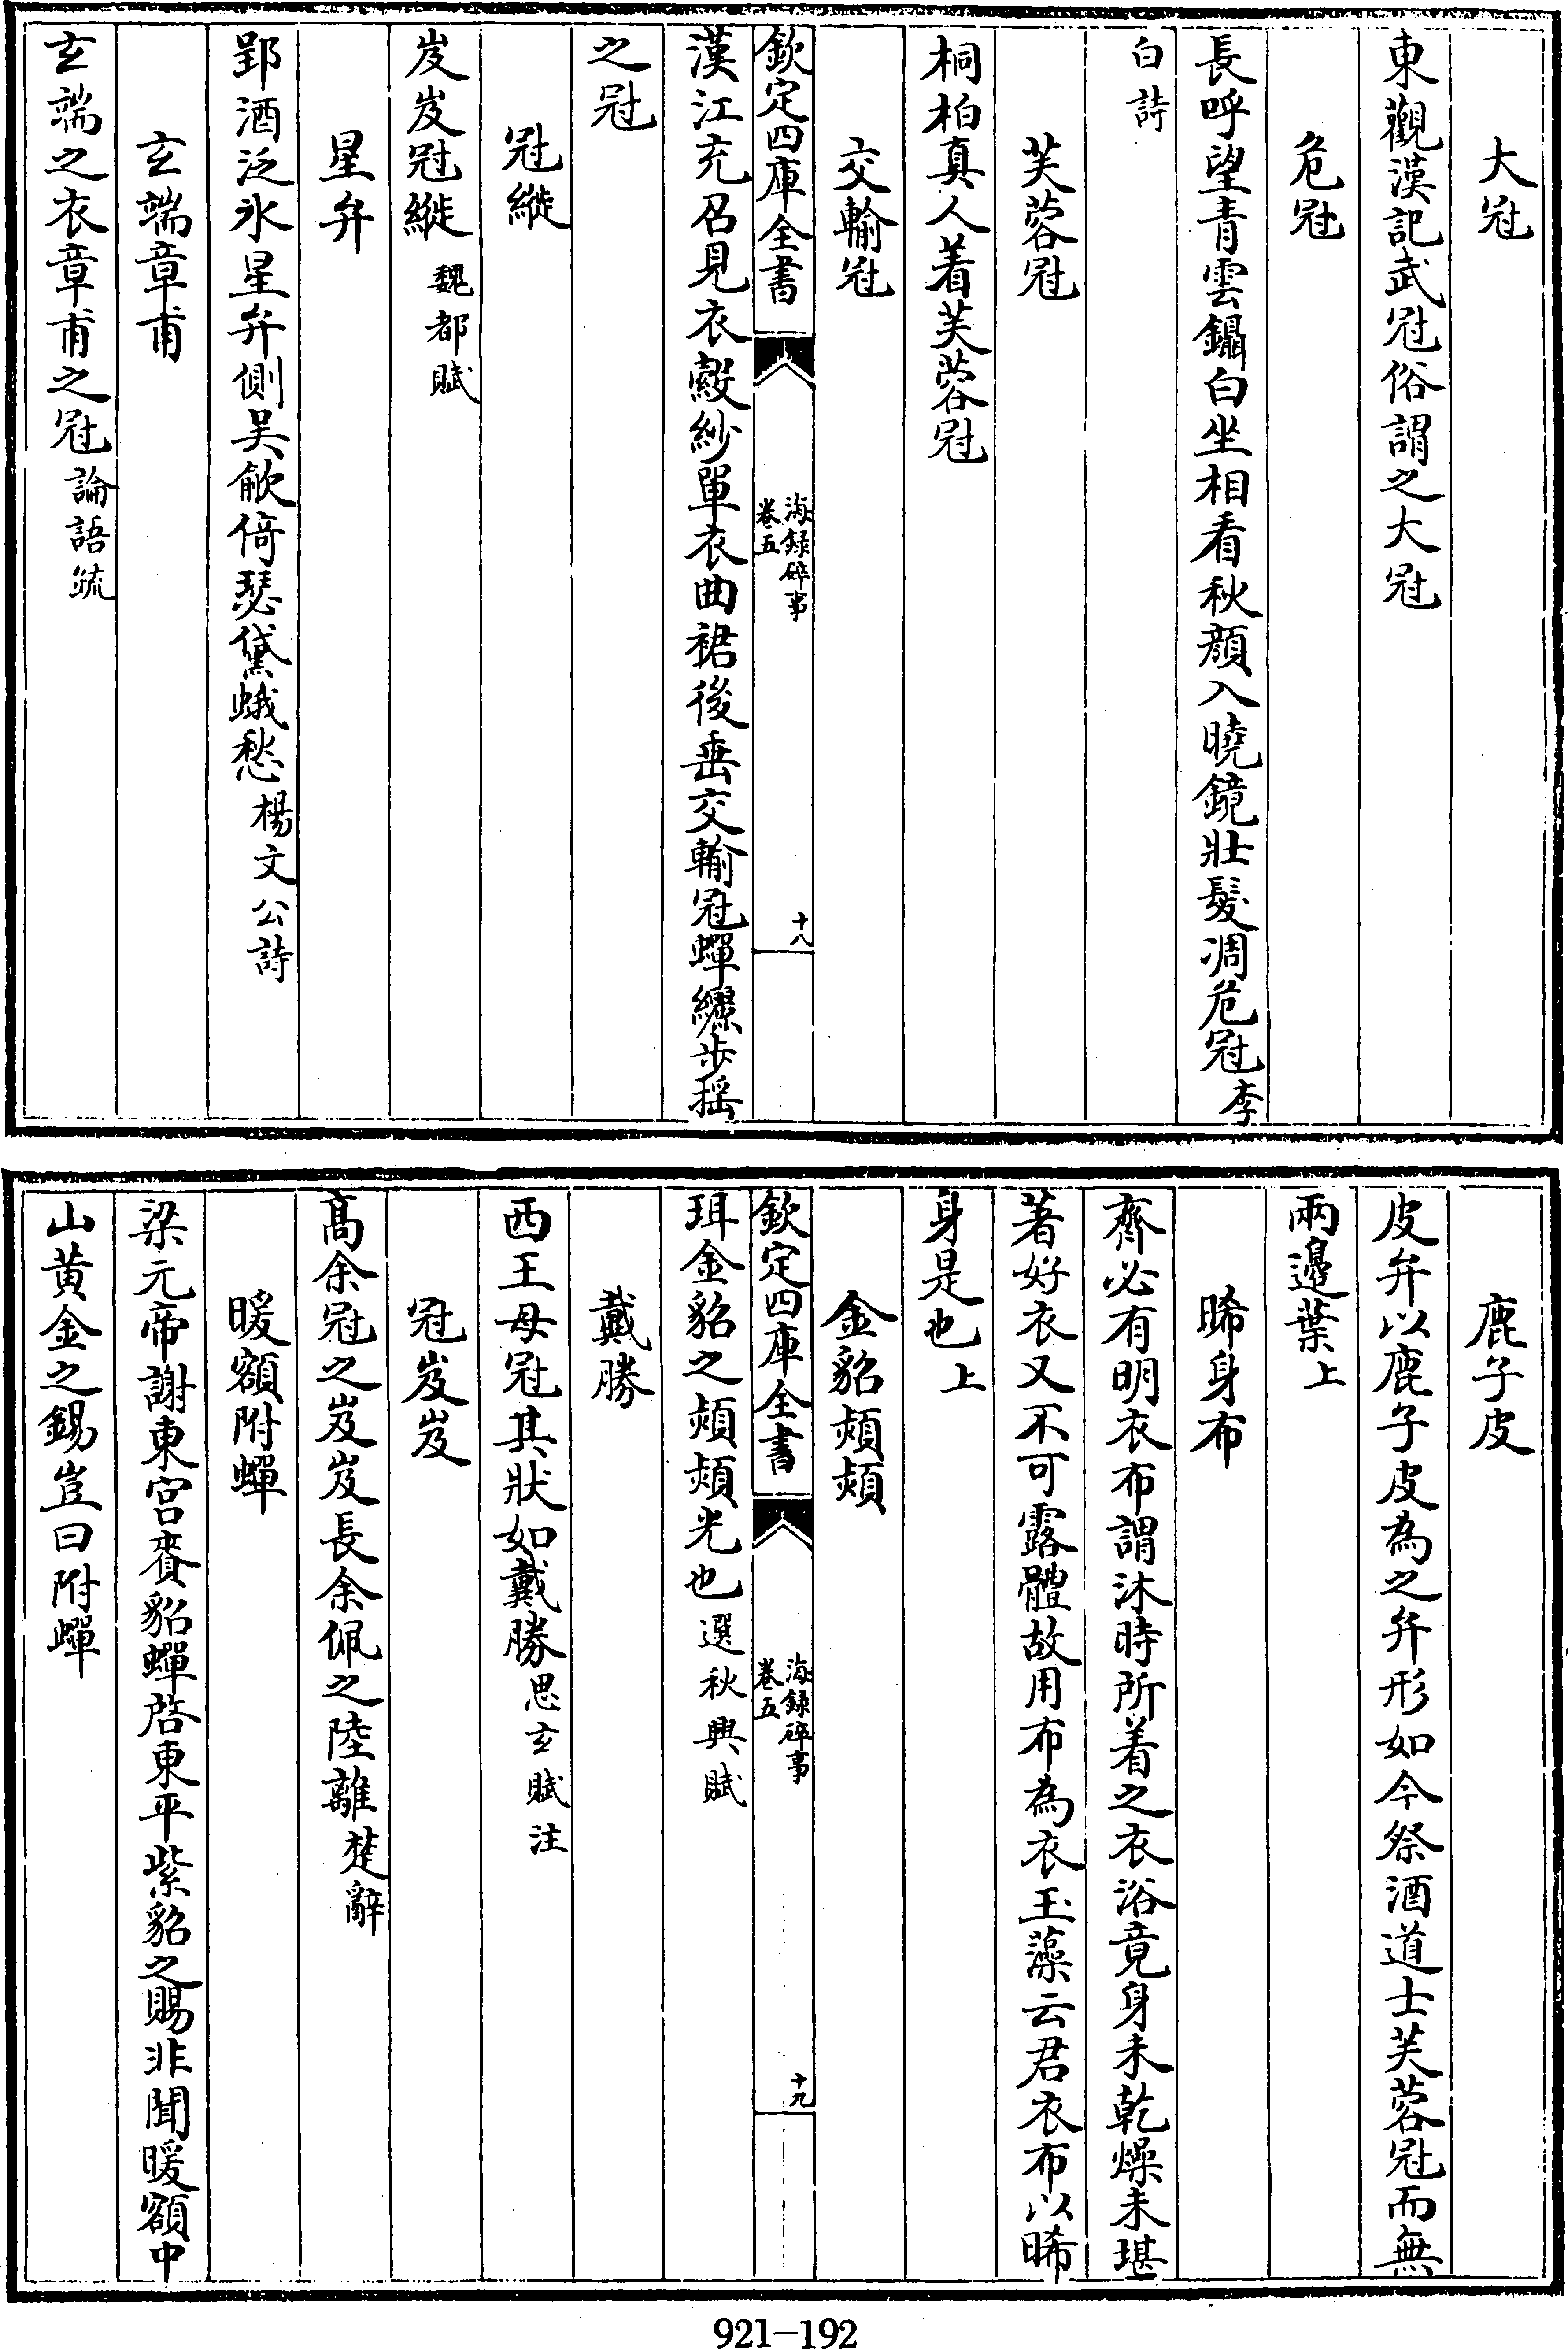 大冠
東觀漢記武冠俗謂之大冠
危冠
長呼望青雲鑷白坐相看秋顔入曉鏡壯髮凋危冠李
白詩
芙蓉冠
桐柏真人着芙蓉冠
交輸冠
欽定四庫全書
海録碎事
卷五
十八
漢江充召見衣縠紗單衣曲裾後垂交輸冠蟬纚步摇
之冠
冠縰
岌岌冠縰魏都賦
星弁
郢酒泛氷星弁側吴歈倚瑟黛蛾愁楊文公詩
玄端章甫
玄端之衣章甫之冠論語疏
鹿子皮
皮弁以鹿子皮為之弁形如今祭酒道士芙蓉冠而無
兩邉葉上
晞身布
齊必有明衣布謂沐時所着之衣浴竟身未乾燥未堪
著好衣又不可露體故用布為衣玉藻云君衣布以晞
身是也上
金貂熲熲
欽定四庫全書
海録碎事
卷五
十九
珥金貂之熲熲光也選秋興賦
戴勝
西王母冠其狀如戴勝思玄賦注
冠岌岌
髙余冠之岌岌長余佩之陸離楚辭
暖額附蟬
梁元帝謝東宫賚貂蟬啓東平紫貂之賜非聞暖額中
山黄金之錫豈曰附蟬
921-192